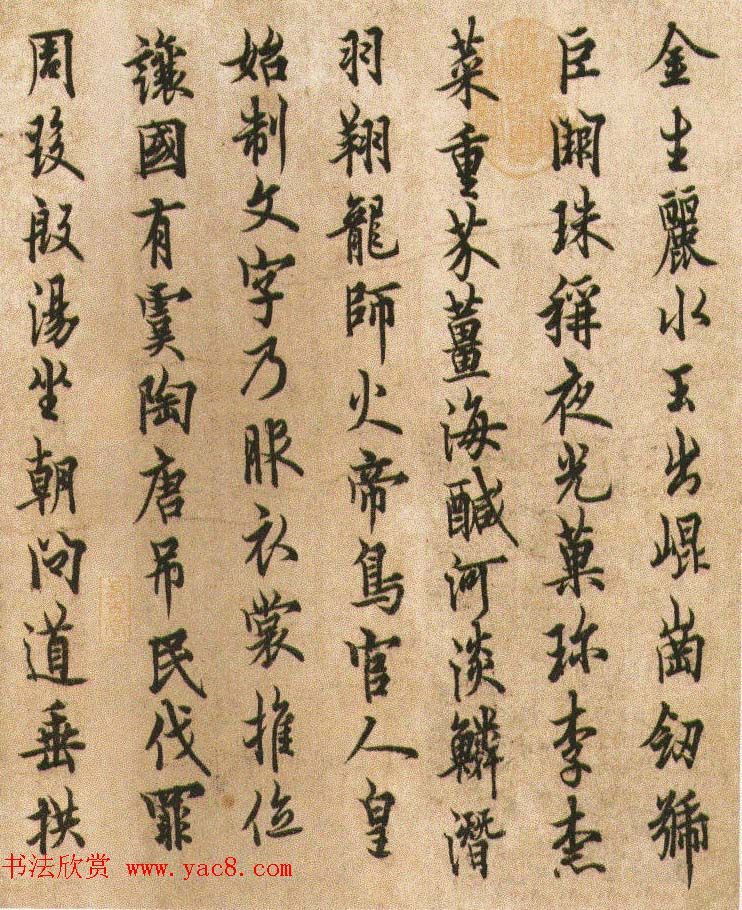 金生麗水玉出崐崗劒號
巨闕珠稱夜光菓珎李柰
菜重芥薑海鹹河淡鱗潛
羽翔龍師火帝鳥官人皇
始制文字乃服衣裳推位
讓國有虞陶唐吊民伐罪
周發殷湯坐朝問道垂拱
书法欣赏 www.yac8.com